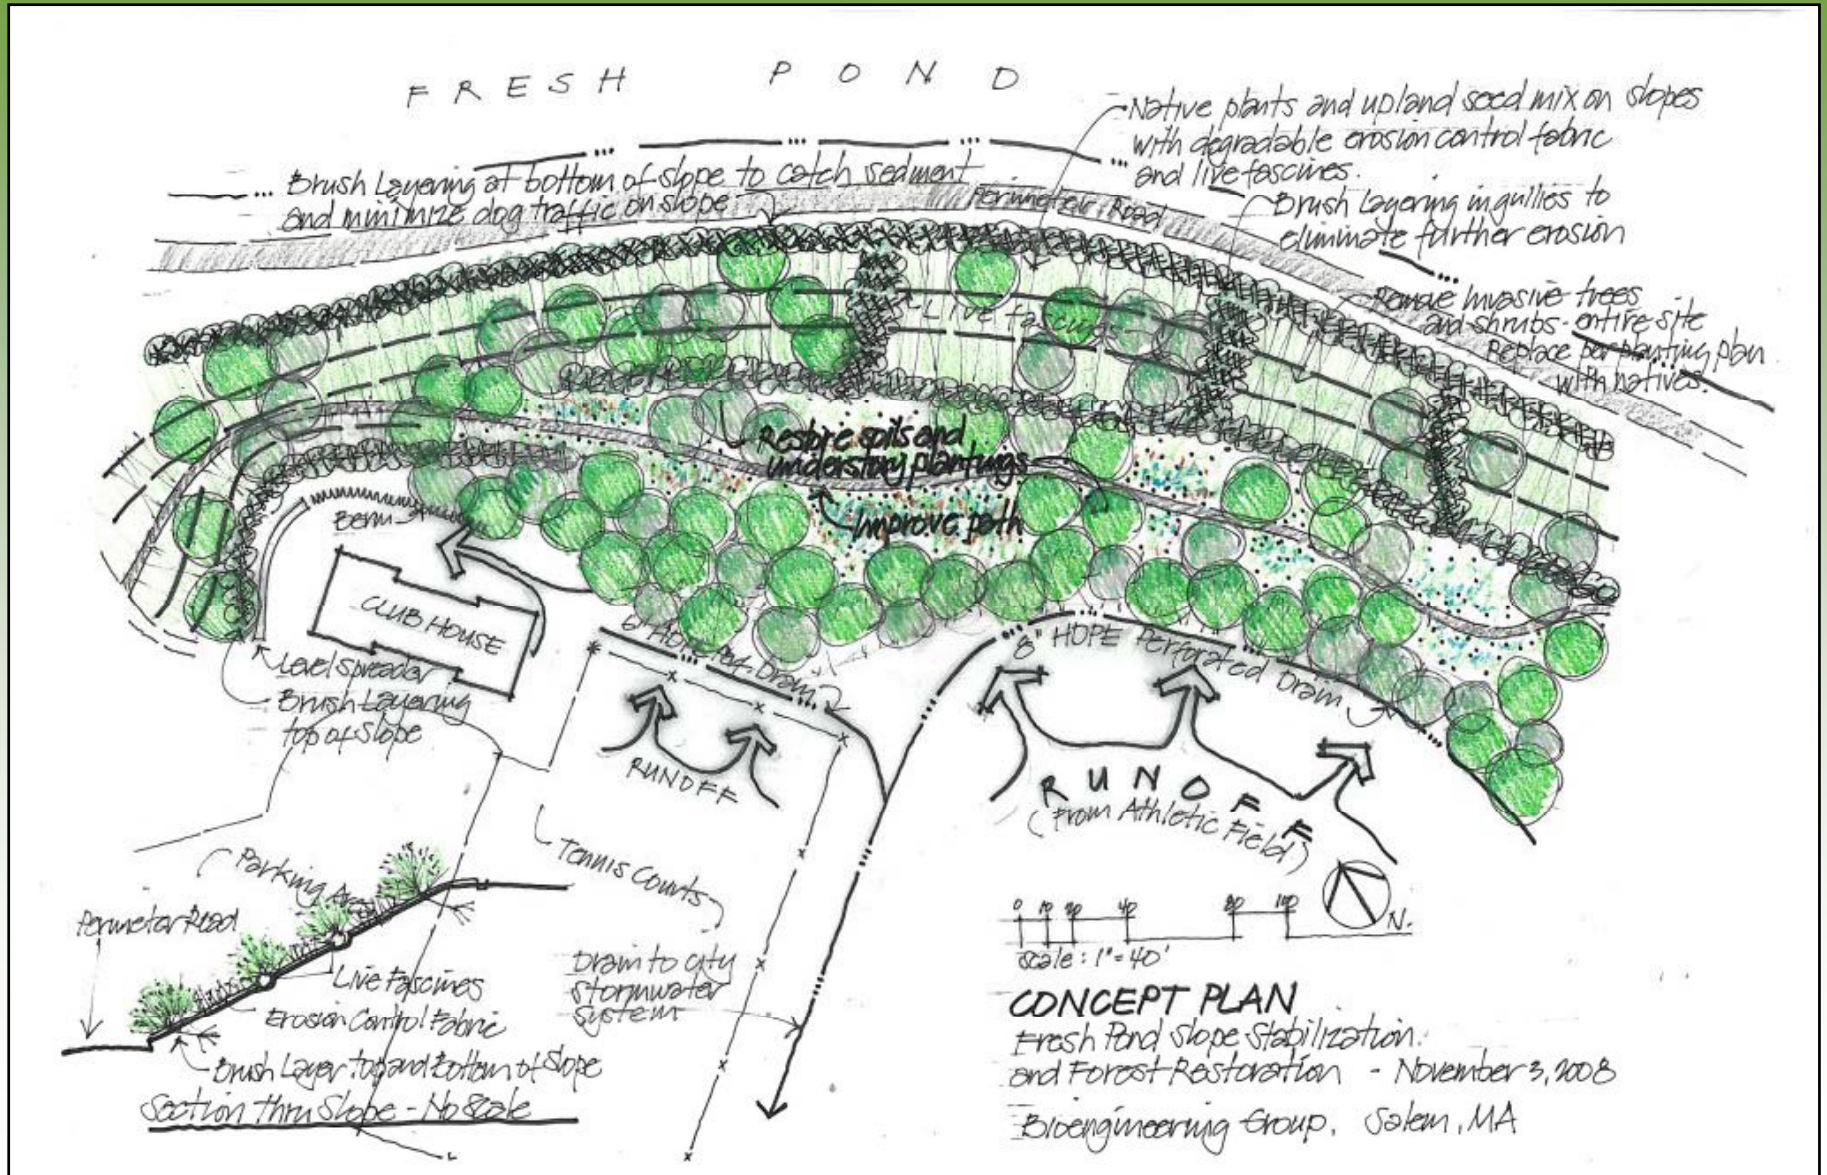 FRESH POND
Native plants and upland seed mix on slopes
with degradable erosion control fabric
and live fascines.
Brush Layering at bottom of slope to catch sediment
and minimize dog traffic on slope
Perimeter Road
Brush Layering in gullies to
eliminate further erosion
Remove Invasive trees
and shrubs - entire site
Replace per planting plan
with natives.
Live fascine
Restore soils and
understory plantings
Improve path
Berm
CLUB HOUSE
Level spreader
Brush Layering
top of slope
6" HDPE Perf. Drain
8" HDPE Perforated Drain
RUNOFF
RUNOFF
(From Athletic Field)
Tennis Courts
Parking Area
Perimeter Road
Live Fascines
Erosion Control Fabric
Brush Layer top and Bottom of Slope
Section thru Slope - No Scale
Drain to city
stormwater
system
0 10 20 40 80 100
N.
Scale: 1"=40'
CONCEPT PLAN
Fresh Pond Slope Stabilization
and Forest Restoration - November 3, 2008
Bioengineering Group, Salem, MA